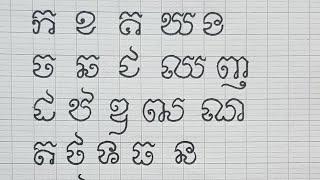 ក ខ គ ឃ ង
ច ឆ ជ ឈ ញ
ដ ឋ ឌ ឍ ណ
ត ថ ទ ធ ន